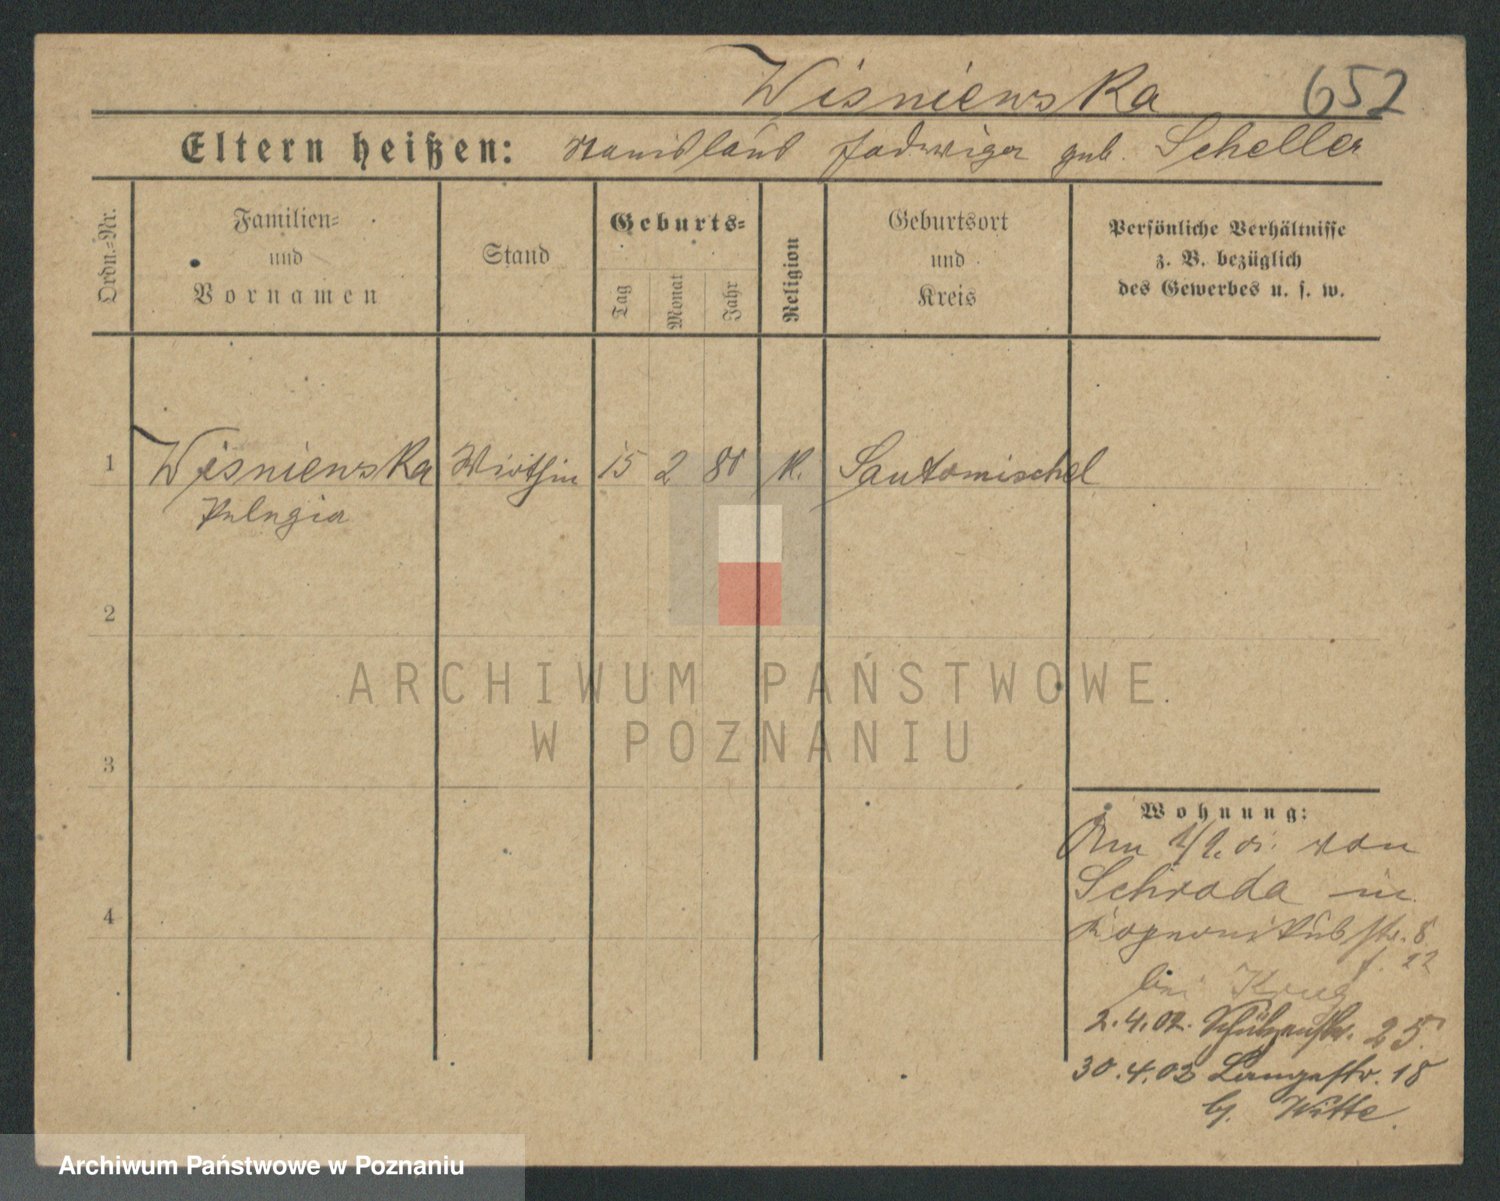 Wisniewska 652
Eltern heißen: Stanislaus Jadwiga geb. Scheller
Ordn.-Nr.
Familien-
und
Vornamen
Stand
Geburts-
Tag
Monat
Jahr
Religion
Geburtsort
und
Kreis
Persönliche Verhältnisse
z. B. bezüglich
des Gewerbes u. s. w.
1 Wisniewska Wirthin 15 2 80 k. Santomischel
Pelagia
2
3
4
ARCHIWUM PAŃSTWOWE
W POZNANIU
Wohnung:
Am von
Schroda in
str. 8
bei Krug
2.4.02. Schützenstr. 25.
30.4.03 Langestr. 18
bj. Witte.
Archiwum Państwowe w Poznaniu